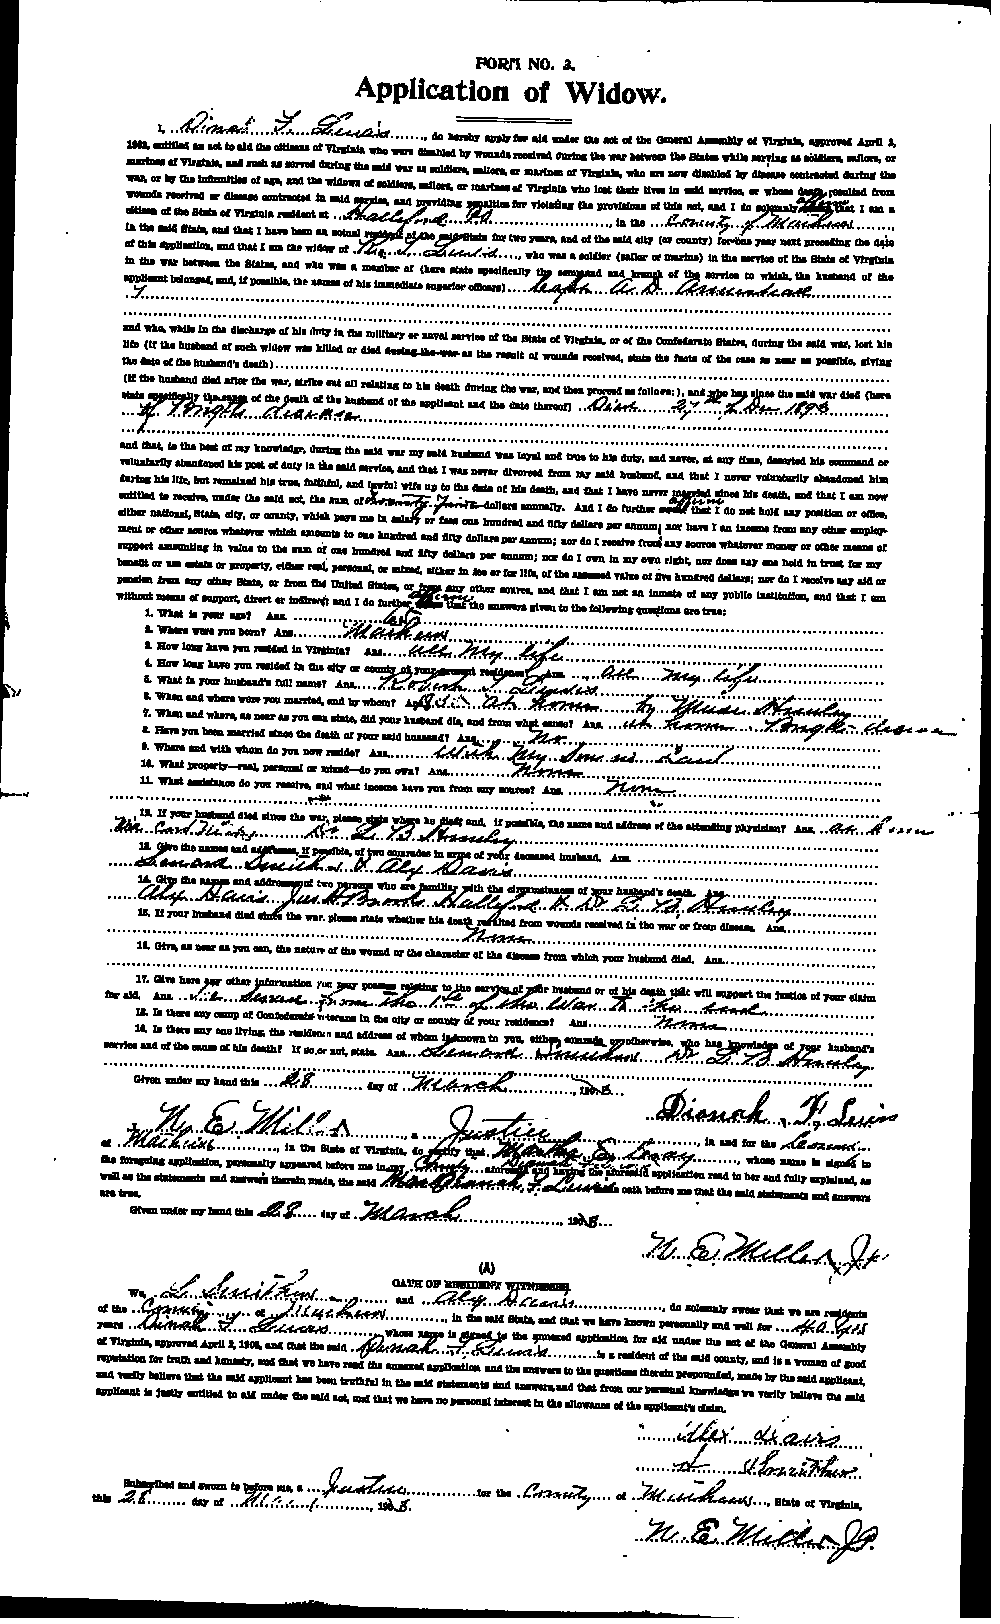 FORM NO. 3.
Application of Widow.
I, Dinah F. Lewis, do hereby apply for aid under the act of the General Assembly of Virginia, approved April 2,
1902, entitled an act to aid the citizens of Virginia who were disabled by wounds received during the war between the States while serving as soldiers, sailors, or
marines of Virginia, and such as served during the said war as soldiers, sailors, or marines of Virginia, who are now disabled by disease contracted during the
war, or by the infirmities of age, and the widows of soldiers, sailors, or marines of Virginia who lost their lives in said service, or whose death resulted from
wounds received or disease contracted in said service, and providing penalties for violating the provisions of this act, and I do solemnly that I am a
citizen of the State of Virginia resident at Hallieford PO, in the County of Mathews,
in the said State, and that I have been an actual resident of the said State for two years, and of the said city (or county) for one year next preceding the date
of this application, and that I am the widow of Lewis, who was a soldier (sailor or marine) in the service of the State of Virginia
in the war between the States, and who was a member of (here state specifically the command and branch of the service to which the husband of the
applicant belonged, and, if possible, the names of his immediate superior officers) Capt A. D. Armistead
and who, while in the discharge of his duty in the military or naval service of the State of Virginia, or of the Confederate States, during the said war, lost his
life (if the husband of such widow was killed or died during the war as the result of wounds received, state the facts of the case as near as possible, giving
the date of the husband's death)
(If the husband died after the war, strike out all relating to his death during the war, and then proceed as follows:), and who has since the said war died (here
state specifically the cause of the death of the husband of the applicant and the date thereof) Died 27th of Dec 1893
of Brights disease
and that, to the best of my knowledge, during the said war my said husband was loyal and true to his duty, and never, at any time, deserted his command or
voluntarily abandoned his post of duty in the said service, and that I was never divorced from my said husband, and that I never voluntarily abandoned him
during his life, but remained his true, faithful, and lawful wife up to the date of his death, and that I have never married since his death, and that I am now
entitled to receive, under the said act, the sum of twenty five dollars annually. And I do further affirm that I do not hold any position or office,
either national, State, city, or county, which pays me in salary or fees one hundred and fifty dollars per annum; nor have I an income from any other employ-
ment or other source whatever which amounts to one hundred and fifty dollars per annum; nor do I receive from any source whatever money or other means of
support amounting in value to the sum of one hundred and fifty dollars per annum; nor do I own in my own right, nor does any one hold in trust for my
benefit or use estate or property, either real, personal, or mixed, either in fee or for life, of the assessed value of five hundred dollars; nor do I receive any aid or
pension from any other State, or from the United States, or from any other source, and that I am not an inmate of any public institution, and that I am
without means of support, direct or indirect; and I do further affirm that the answers given to the following questions are true:
1. What is your age? Ans. 65
2. Where were you born? Ans. Mathews
3. How long have you resided in Virginia? Ans. all my life
4. How long have you resided in the city or county of your present residence? Ans. all my life
5. What is your husband's full name? Ans. Robert S Lewis
6. When and where were you married, and by whom? Ans. at home by Hundley
7. When and where, as near as you can state, did your husband die, and from what cause? Ans. at home Brights disease
8. Have you been married since the death of your said husband? Ans. No
9. Where and with whom do you now reside? Ans. With my Son in Law
10. What property—real, personal or mixed—do you own? Ans. None
11. What assistance do you receive, and what income have you from any source? Ans. None
12. If your husband died since the war, please state where he died; and, if possible, the name and address of the attending physician? Ans. at home
Dr L B Hundley
13. Give the names and addresses, if possible, of two comrades in arms of your deceased husband. Ans.
Lenard Smith & Alex Davis
14. Give the names and addresses of two persons who are familiar with the circumstances of your husband's death. Ans.
Alex Davis Jas H Brooks Hallieford & Dr L B Hundley
15. If your husband died since the war, please state whether his death resulted from wounds received in the war or from disease. Ans.
None
16. Give, as near as you can, the nature of the wound or the character of the disease from which your husband died. Ans.
17. Give here any other information you may possess relating to the service of your husband or of his death that will support the justice of your claim
for aid. Ans. he served from the 1st of the War to the end
18. Is there any camp of Confederate veterans in the city or county of your residence? Ans. None
19. Is there any one living, the residence and address of whom is known to you, either comrade or otherwise, who has knowledge of your husband's
service and of the cause of his death? If so, or not, state. Ans. Lenard Smither Dr L B Hundley
Given under my hand this 28 day of March, 190
Dianah F. Lewis
I, N E Miller, a Justice, in and for the County
of Mathews, in the State of Virginia, do certify that, whose name is signed to
the foregoing application, personally appeared before me in my County aforesaid and having the aforesaid application read to her and fully explained, as
well as the statements and answers therein made, the said Dianah F Lewis made oath before me that the said statements and answers
are true.
Given under my hand this 28 day of March, 190
N. E. Miller, JP
(A)
OATH OF RESIDENT WITNESSES.
We, L Smither and Alex Davis, do solemnly swear that we are residents
of the County of Mathews, in the said State, and that we have known personally and well for 40 yers
years Dinah F Lewis, whose name is signed to the annexed application for aid under the act of the General Assembly
of Virginia, approved April 2, 1902, and that the said Dinah F Lewis is a resident of the said county, and is a woman of good
reputation for truth and honesty, and that we have read the annexed application and the answers to the questions therein propounded, made by the said applicant,
and verily believe that the said applicant has been truthful in the said statements and answers, and that from our personal knowledge we verily believe the said
applicant is justly entitled to aid under the said act, and that we have no personal interest in the allowance of the applicant's claim.
Alex Davis
L Smither
Subscribed and sworn to before me, a Justice for the County of Mathews, State of Virginia,
this 28 day of March, 190
N. E. Miller JP.